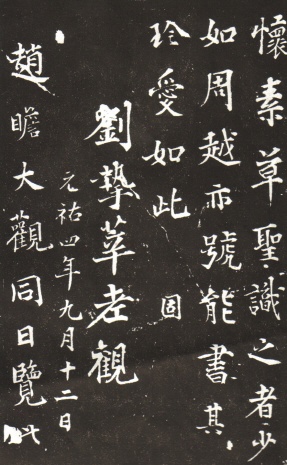 懷素草聖識之者少
如周越亦號能書其
珍愛如此 固
劉摯莘老觀
元祐四年九月十二日
趙瞻大觀同日覽